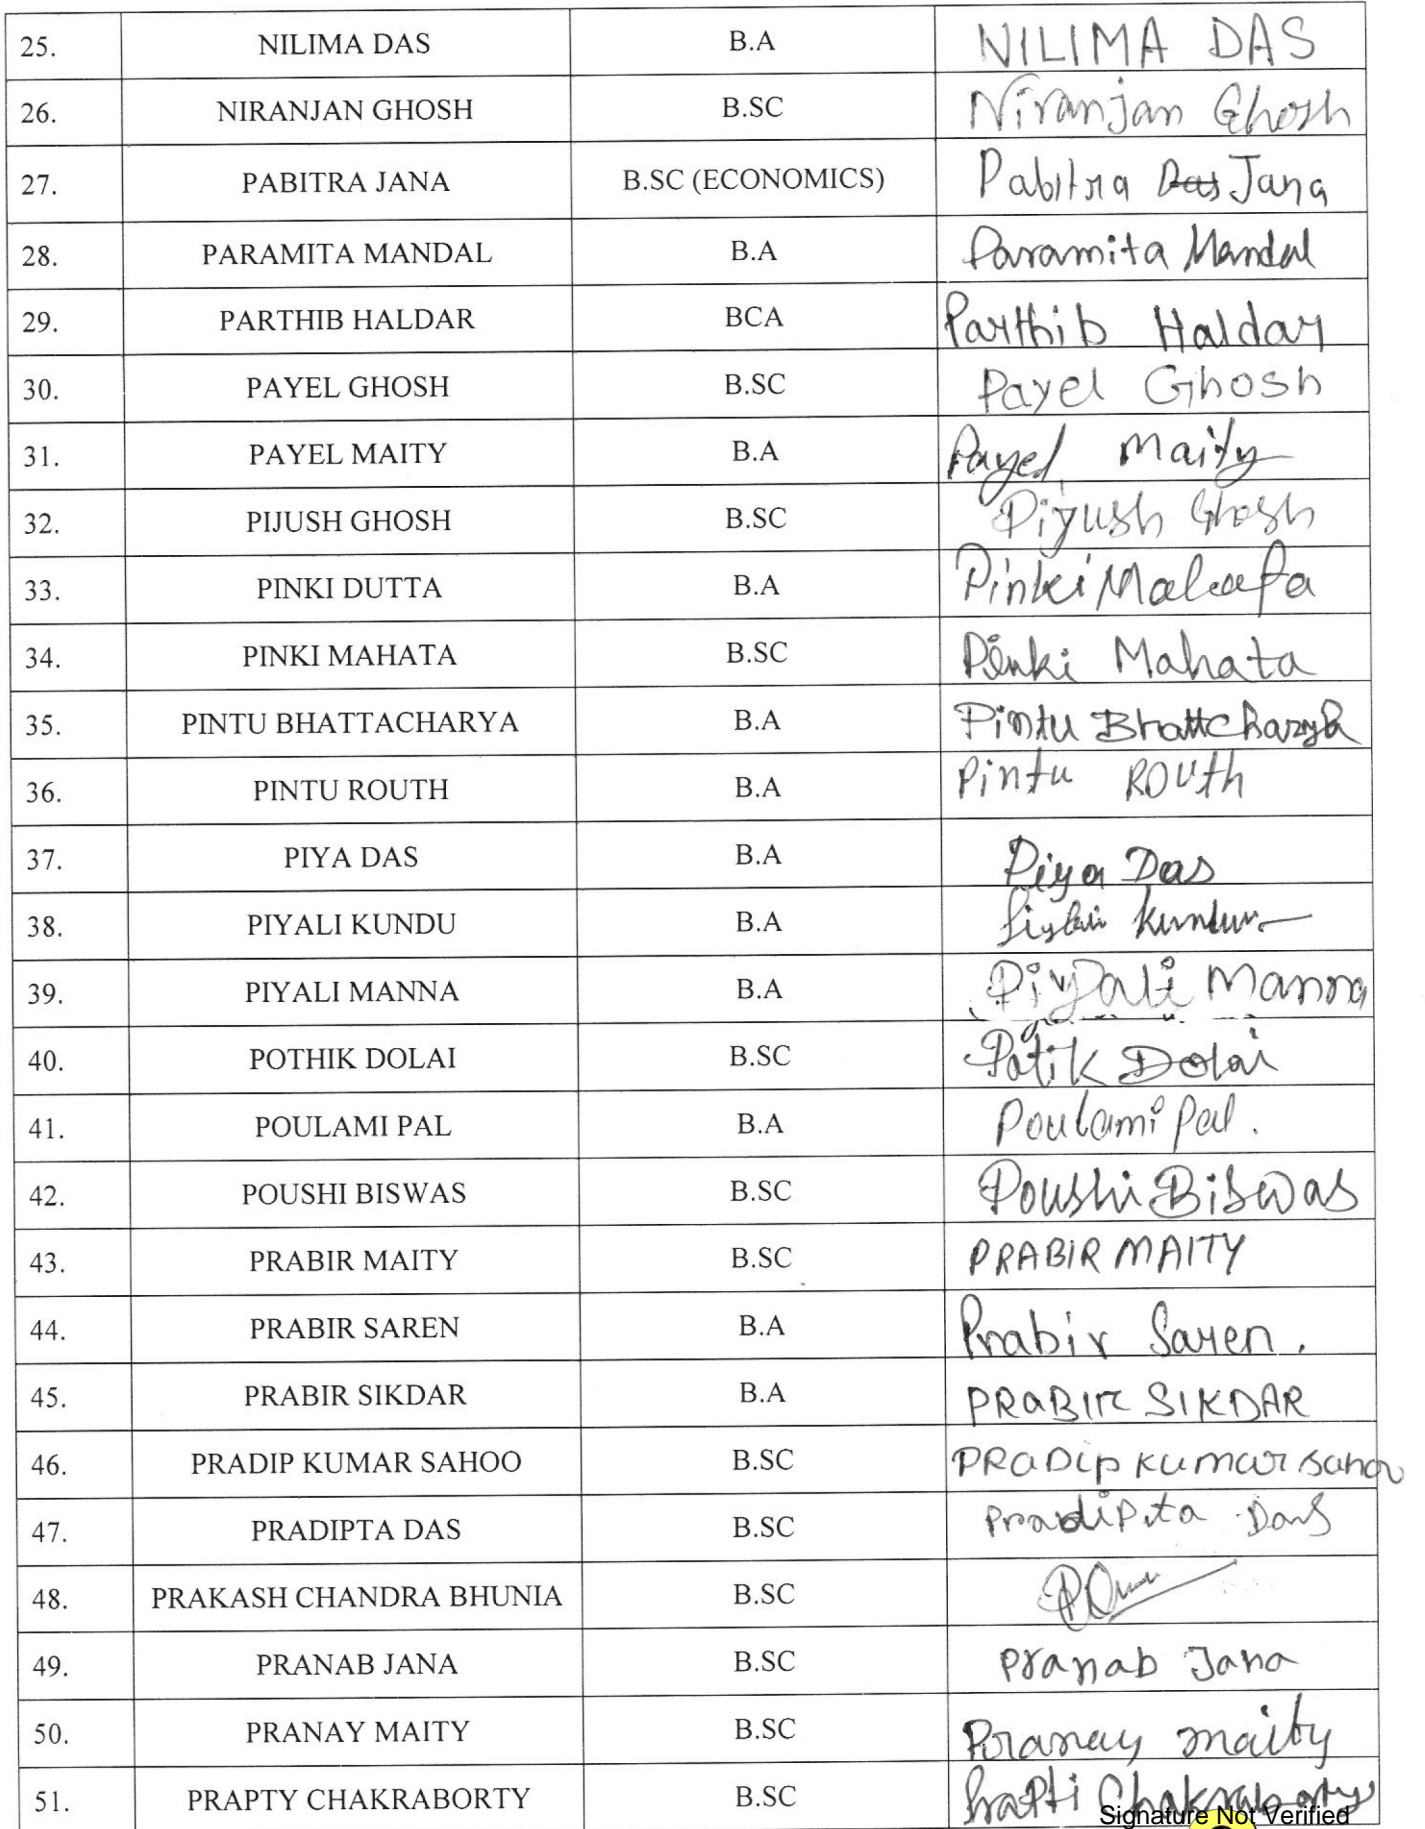 25. NILIMA DAS B.A NILIMA DAS
26. NIRANJAN GHOSH B.SC Niranjan Ghosh
27. PABITRA JANA B.SC (ECONOMICS) Pabitra Das Jana
28. PARAMITA MANDAL B.A Paramita Mandal
29. PARTHIB HALDAR BCA Parthib Haldar
30. PAYEL GHOSH B.SC Payel Ghosh
31. PAYEL MAITY B.A Payel Maity
32. PIJUSH GHOSH B.SC Pijush Ghosh
33. PINKI DUTTA B.A Pinki
34. PINKI MAHATA B.SC Pinki Mahata
35. PINTU BHATTACHARYA B.A Pintu Bhattcharya
36. PINTU ROUTH B.A Pintu ROUth
37. PIYA DAS B.A Piya Das
38. PIYALI KUNDU B.A Kundu
39. PIYALI MANNA B.A Piyali Manna
40. POTHIK DOLAI B.SC Patik Dolai
41. POULAMI PAL B.A Poulami Pal.
42. POUSHI BISWAS B.SC Poushi Biswas
43. PRABIR MAITY B.SC PRABIR MAITY
44. PRABIR SAREN B.A Prabir Saren.
45. PRABIR SIKDAR B.A PRaBIr SIKDAR
46. PRADIP KUMAR SAHOO B.SC PRaDip kumar sahoo
47. PRADIPTA DAS B.SC Pradipta Das
48. PRAKASH CHANDRA BHUNIA B.SC
49. PRANAB JANA B.SC Pranab Jana
50. PRANAY MAITY B.SC Pranay maity
51. PRAPTY CHAKRABORTY B.SC Prapti Chakraborty
Signature Not Verified